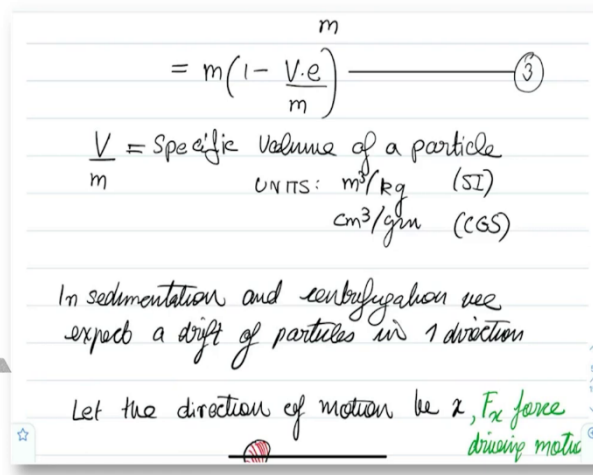 m
= m(1 - V.e/m) ③
V/m = Specific volume of a particle
UNITS: m³/kg (SI)
cm³/gm (CGS)
In sedimentation and centrifugation we
expect a drift of particles in 1 direction
Let the direction of motion be x, Fx force
driving motio